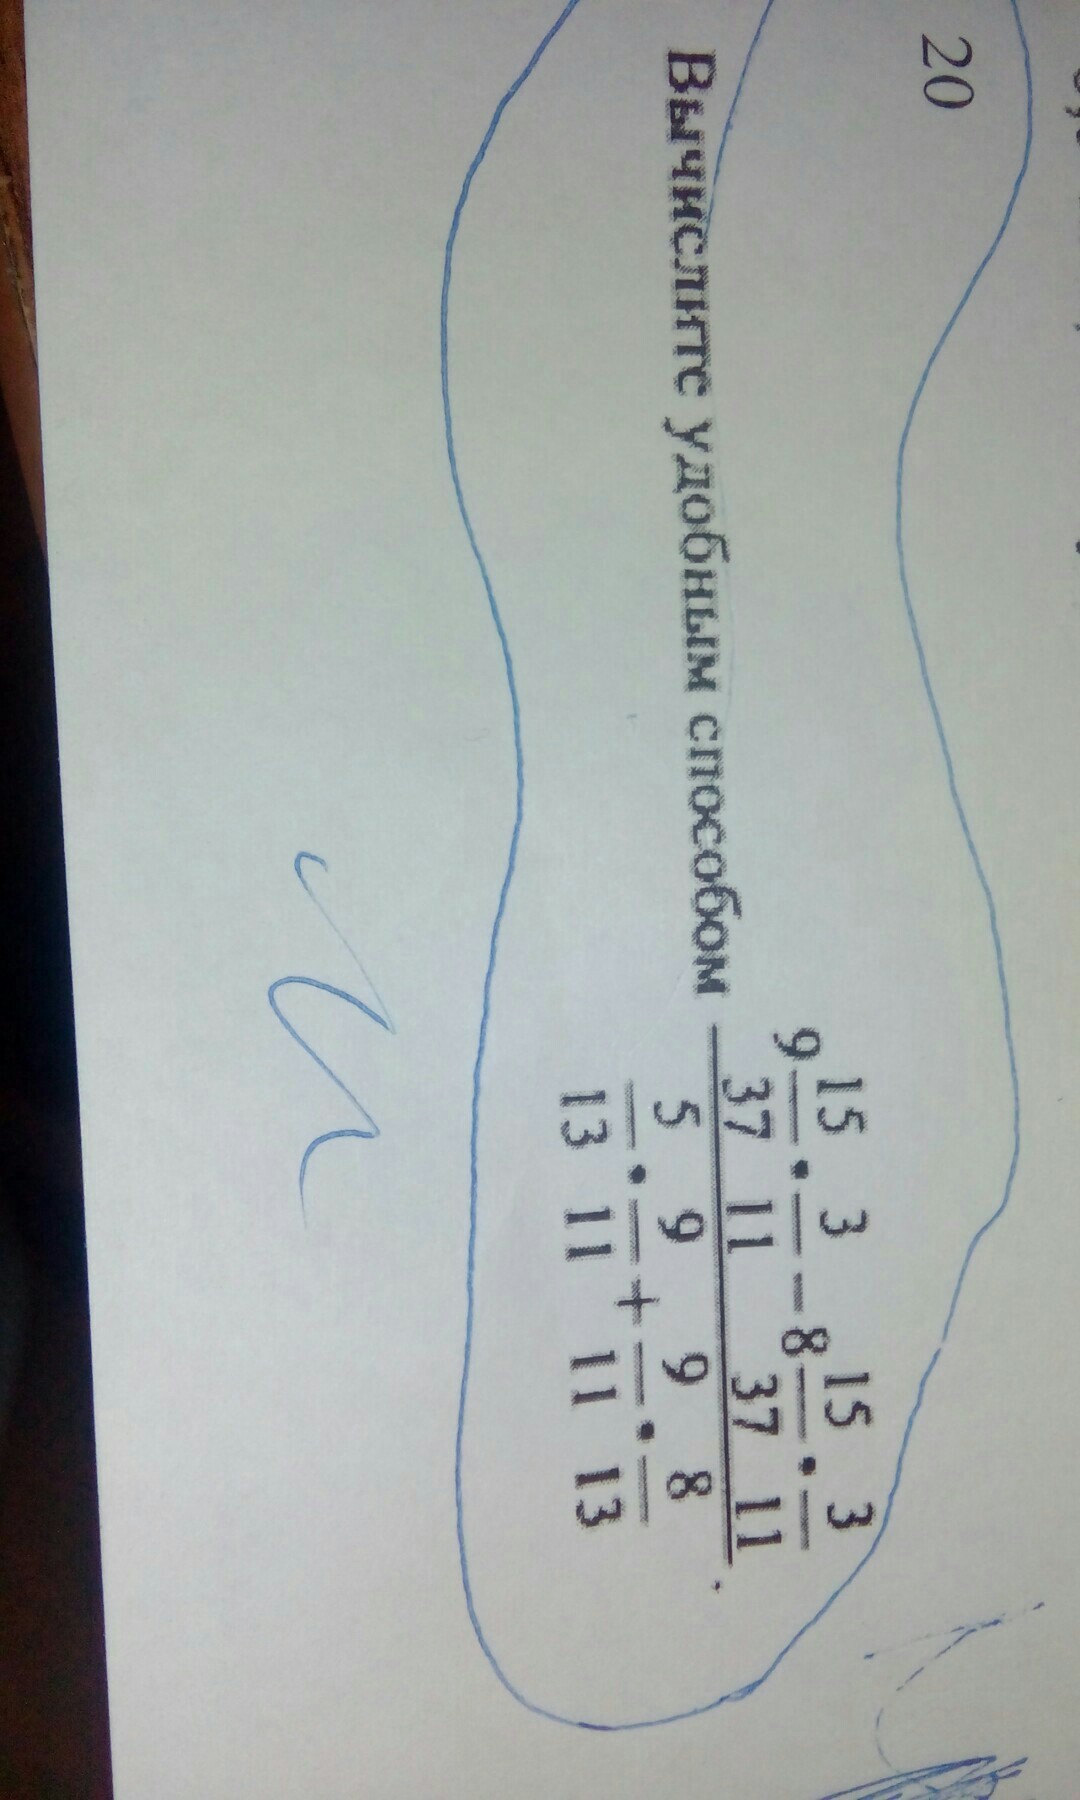 20
Вычислите удобным способом
9 15/37 · 3/11 − 8 15/37 · 3/11
5/13 · 9/11 + 9/11 · 8/13 .